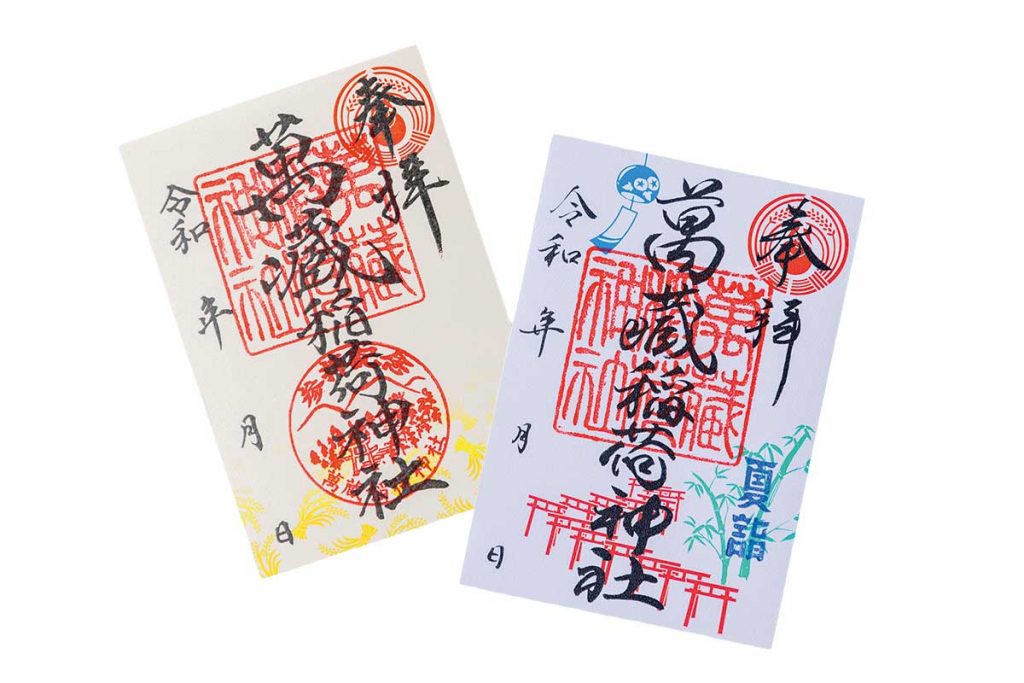 奉拝
萬藏稲荷神社
萬蔵稲荷神社
令和 年 月 日
奉拝
夏詣
萬藏稲荷神社
令和 年 月 日